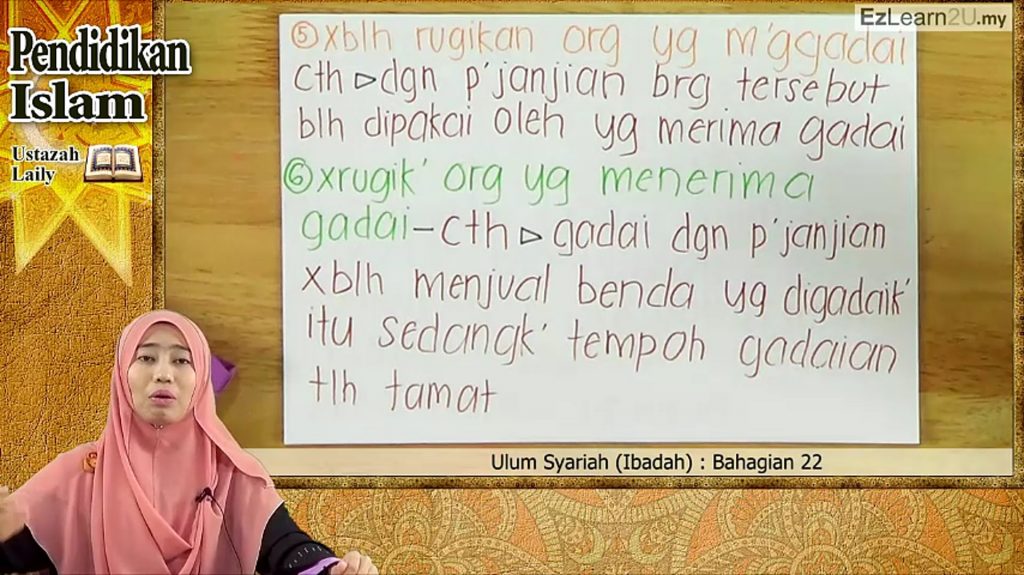 EzLearn2U.my
Pendidikan
Islam
Ustazah
Laily
⑤ xblh rugikan org yg m'ggadai
cth ▷ dgn p'janjian brg tersebut
blh dipakai oleh yg merima gadai
⑥ xrugik' org yg menerima
gadai – cth ▷ gadai dgn p'janjian
xblh menjual benda yg digadaik'
itu sedangk' tempoh gadaian
tlh tamat
Ulum Syariah (Ibadah) : Bahagian 22